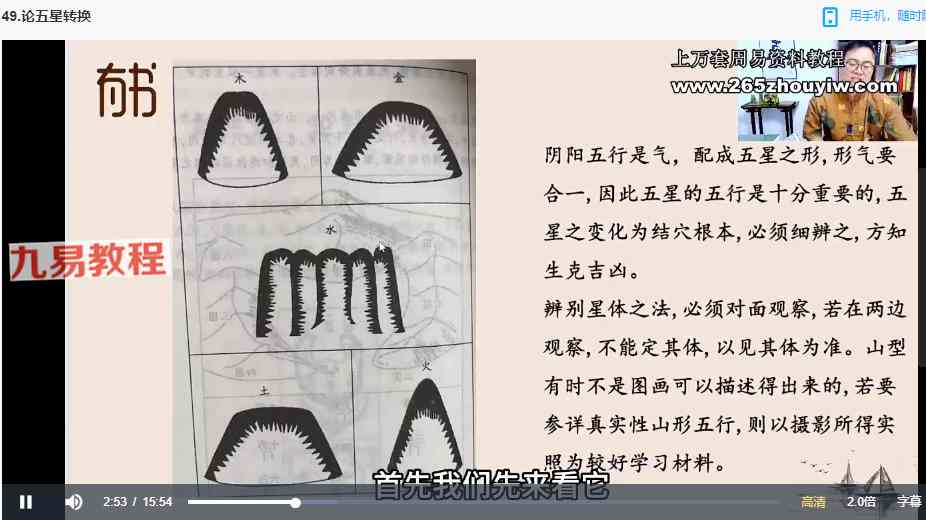 49.论五星转换
用手机，随时
上万套周易资料教程
www.265zhouyiw.com
有书
木
金
水
土
火
九易教程
阴阳五行是气，配成五星之形,形气要
合一,因此五星的五行是十分重要的,五
星之变化为结穴根本,必须细辨之,方知
生克吉凶。
辨别星体之法,必须对面观察,若在两边
观察,不能定其体,以见其体为准。山型
有时不是图画可以描述得出来的,若要
参详真实性山形五行,则以摄影所得实
照为较好学习材料。
首先我们先来看它
2:53 / 15:54
高清
2.0倍
字幕